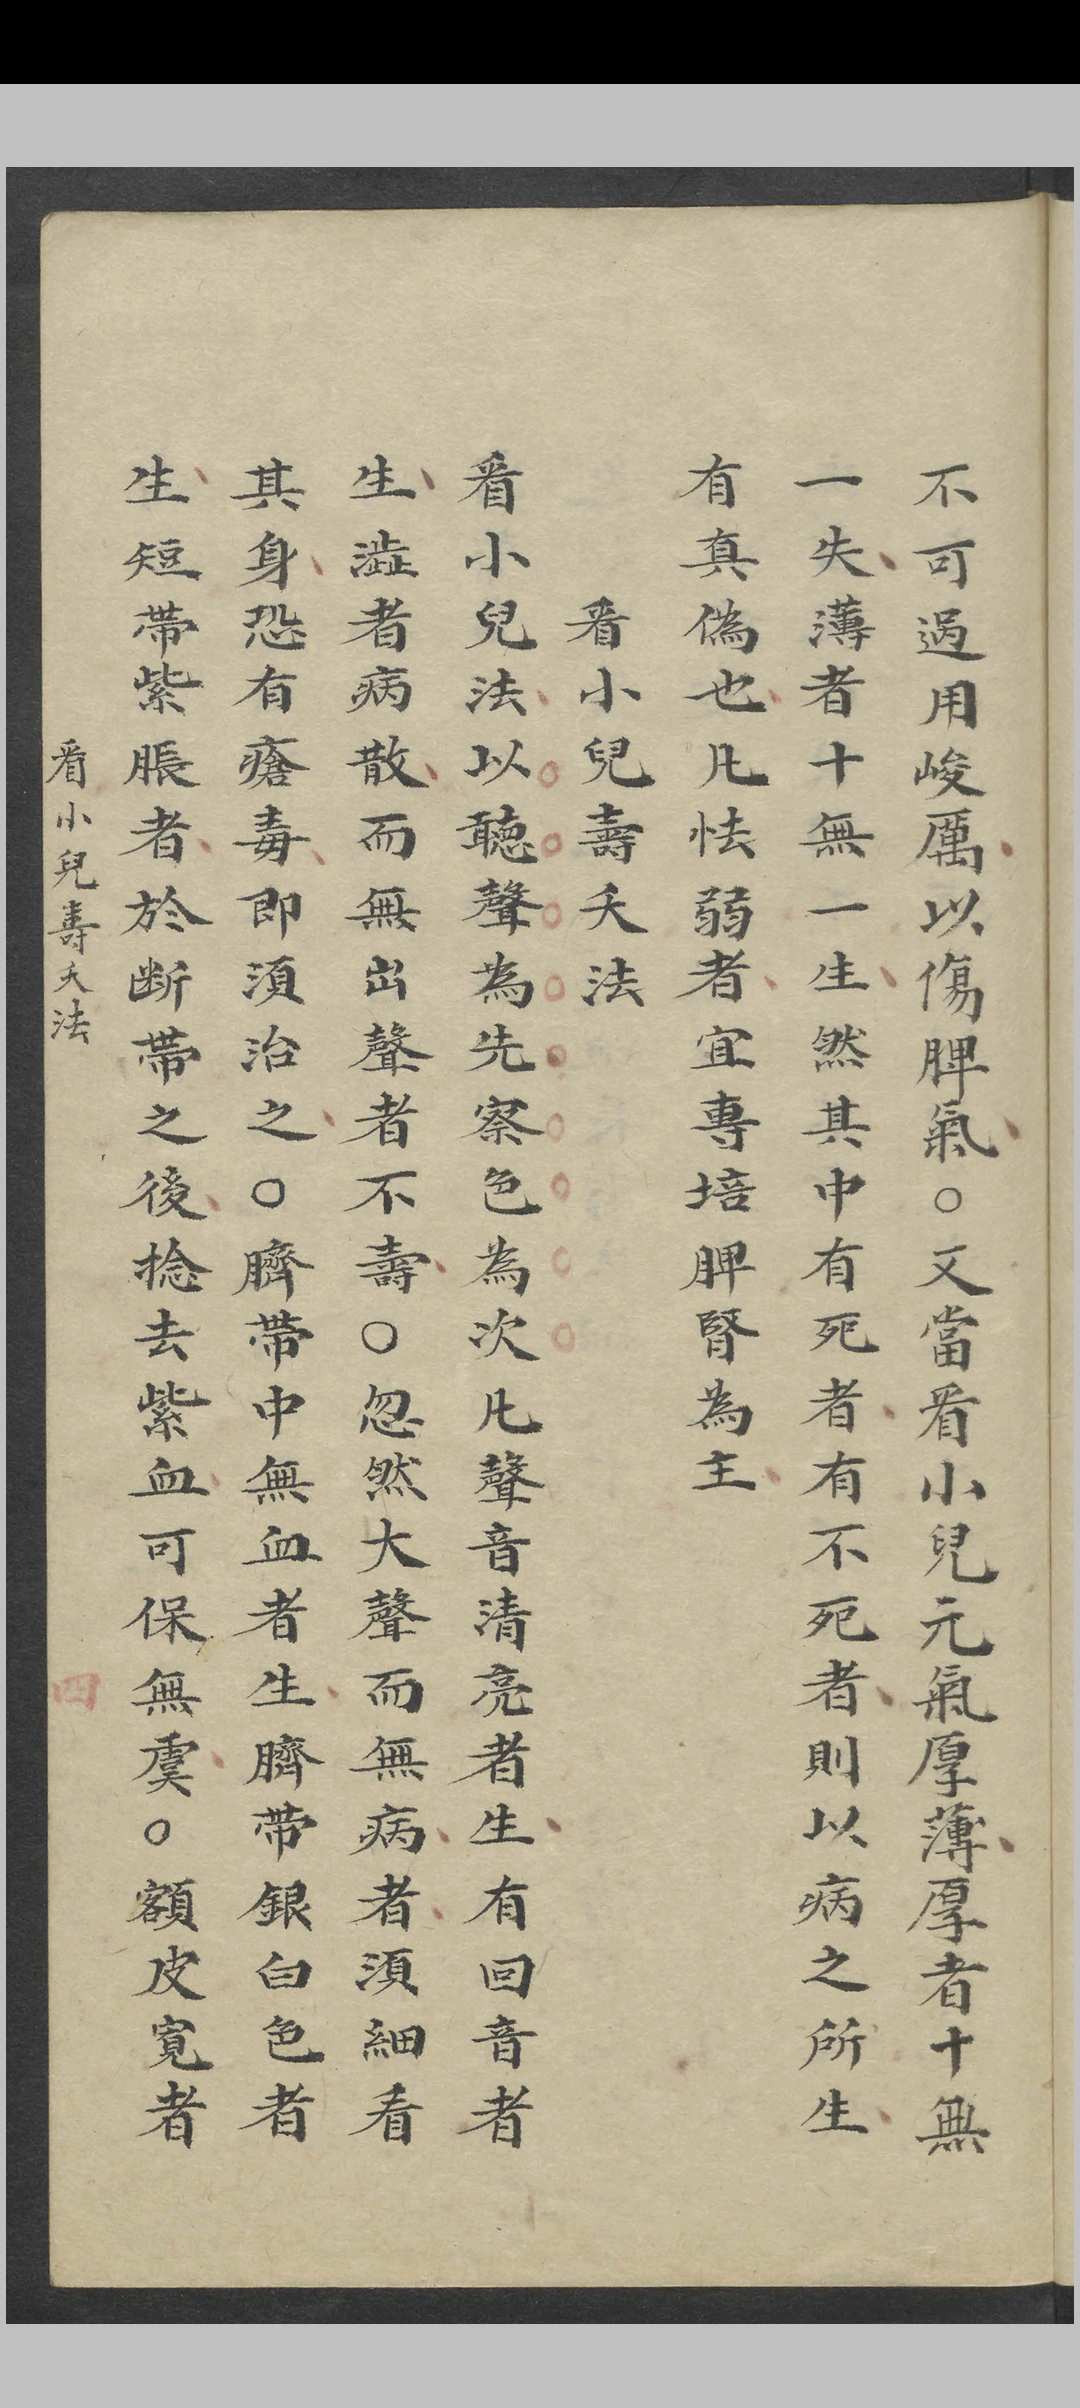 不可過用峻厲以傷脾氣○又當看小兒元氣厚薄厚者十無
一失薄者十無一生然其中有死者有不死者則以病之所生
有真偽也凡怯弱者宜專培脾腎為主
看小兒壽夭法
看小兒法以聽聲為先察色為次凡聲音清亮者生有回音者
生澁者病散而無出聲者不壽○忽然大聲而無病者須細看
其身恐有瘡毒即須治之○臍帶中無血者生臍帶銀白色者
生短帶紫脹者於斷帶之後捻去紫血可保無虞○額皮寬者
看小兒壽夭法
四